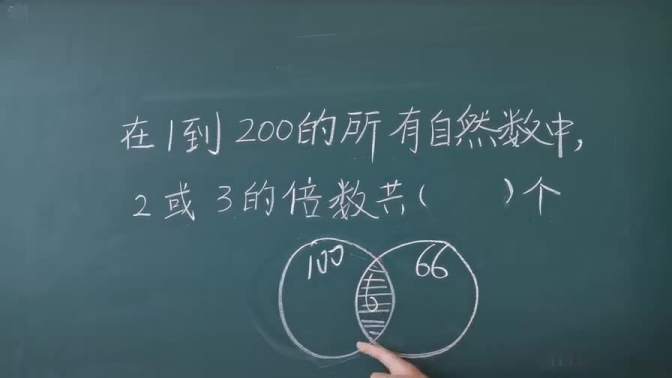 在1到200的所有自然数中,
2或3的倍数共( )个
100 6 66